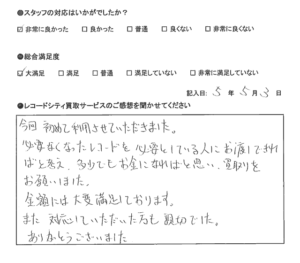 ●スタッフの対応はいかがでしたか？
☑非常に良かった □良かった □普通 □良くない □非常に良くない
●総合満足度
☑大満足 □満足 □普通 □満足していない □非常に満足していない
記入日: 5年 5月 3日
●レコードシティ買取サービスのご感想を聞かせてください
今回 初めて利用させていただきました。
必要なくなったレコードを必要としている人にお渡しできれ
ばと考え、多少でもお金になればと思い、買取りを
お願いしました。
金額には大変満足しております。
また 対応していただいた方も親切でした。
ありがとうございました